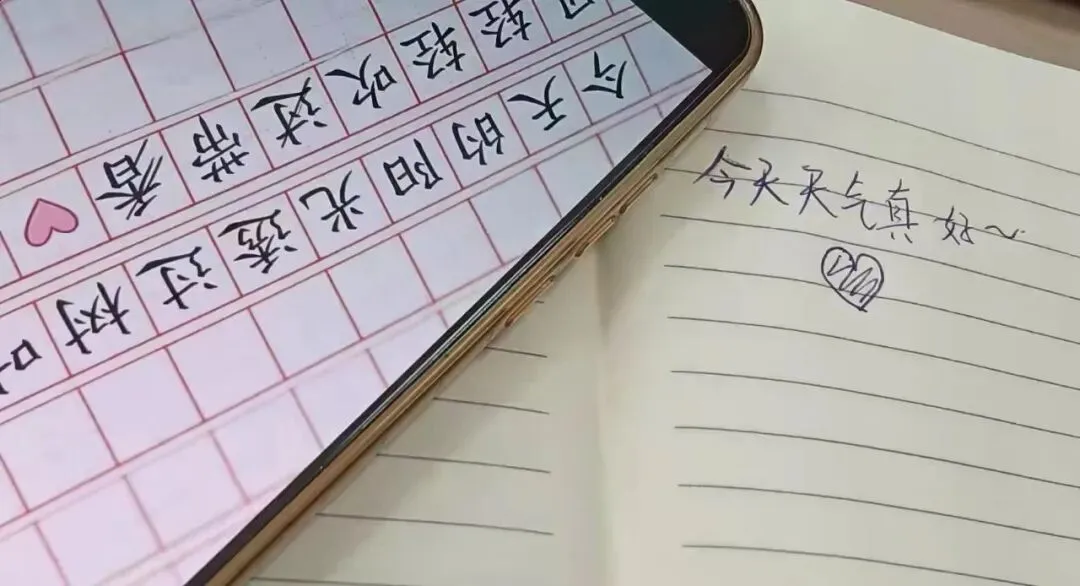 今天的阳光透过树
轻轻吹过带着
今天天气真好~